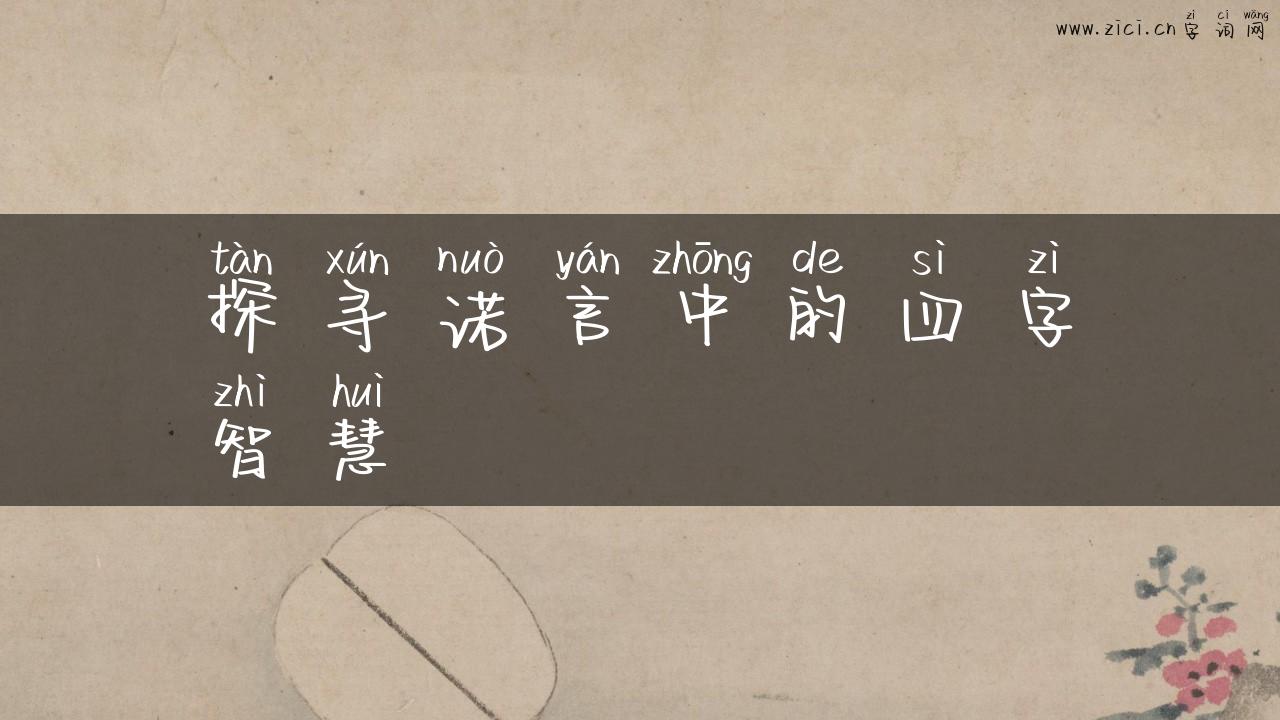 zì cí wǎng
www.zici.cn 字词网
tàn xún nuò yán zhōng de sì zì
探寻诺言中的四字
zhì huì
智慧